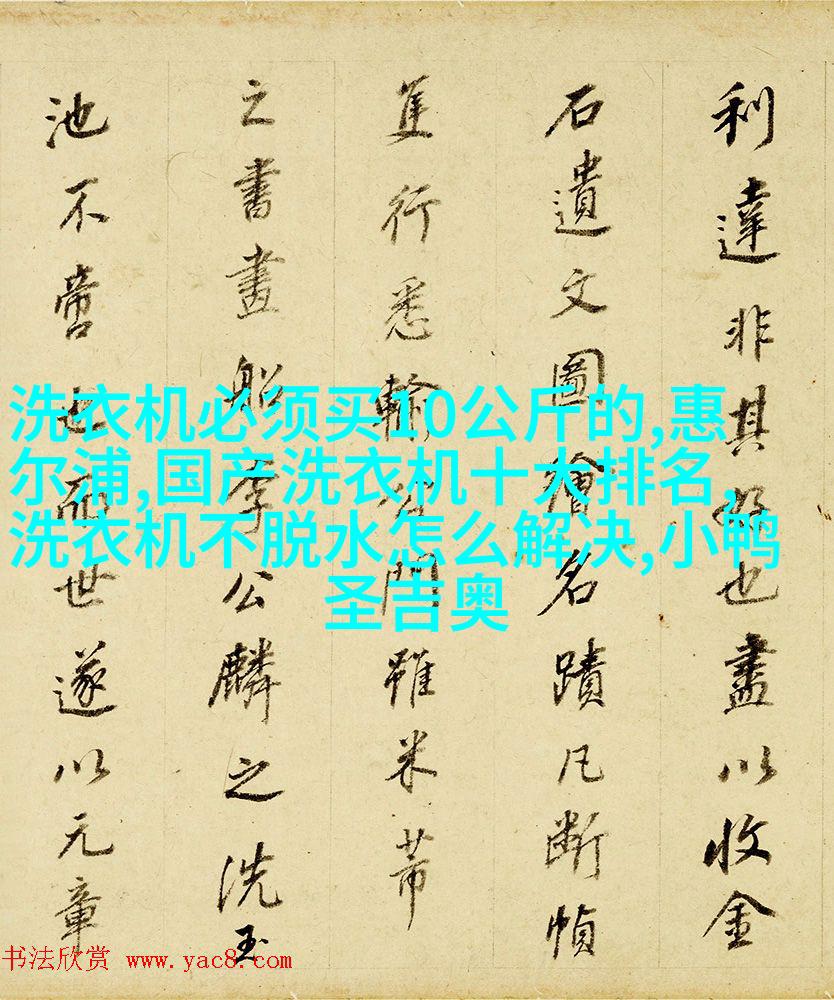 利達非其好也盡以收金
石遺文圖繪名蹟凡斷幀
隻行悉輸門雖米芾
之書畫船李公麟之洗玉
池不啻也而世遂以元章
洗衣机必须买10公斤的,惠
尔浦,国产洗衣机十大排名,
洗衣机不脱水怎么解决,小鸭
圣吉奥
书法欣赏 www.yac8.com